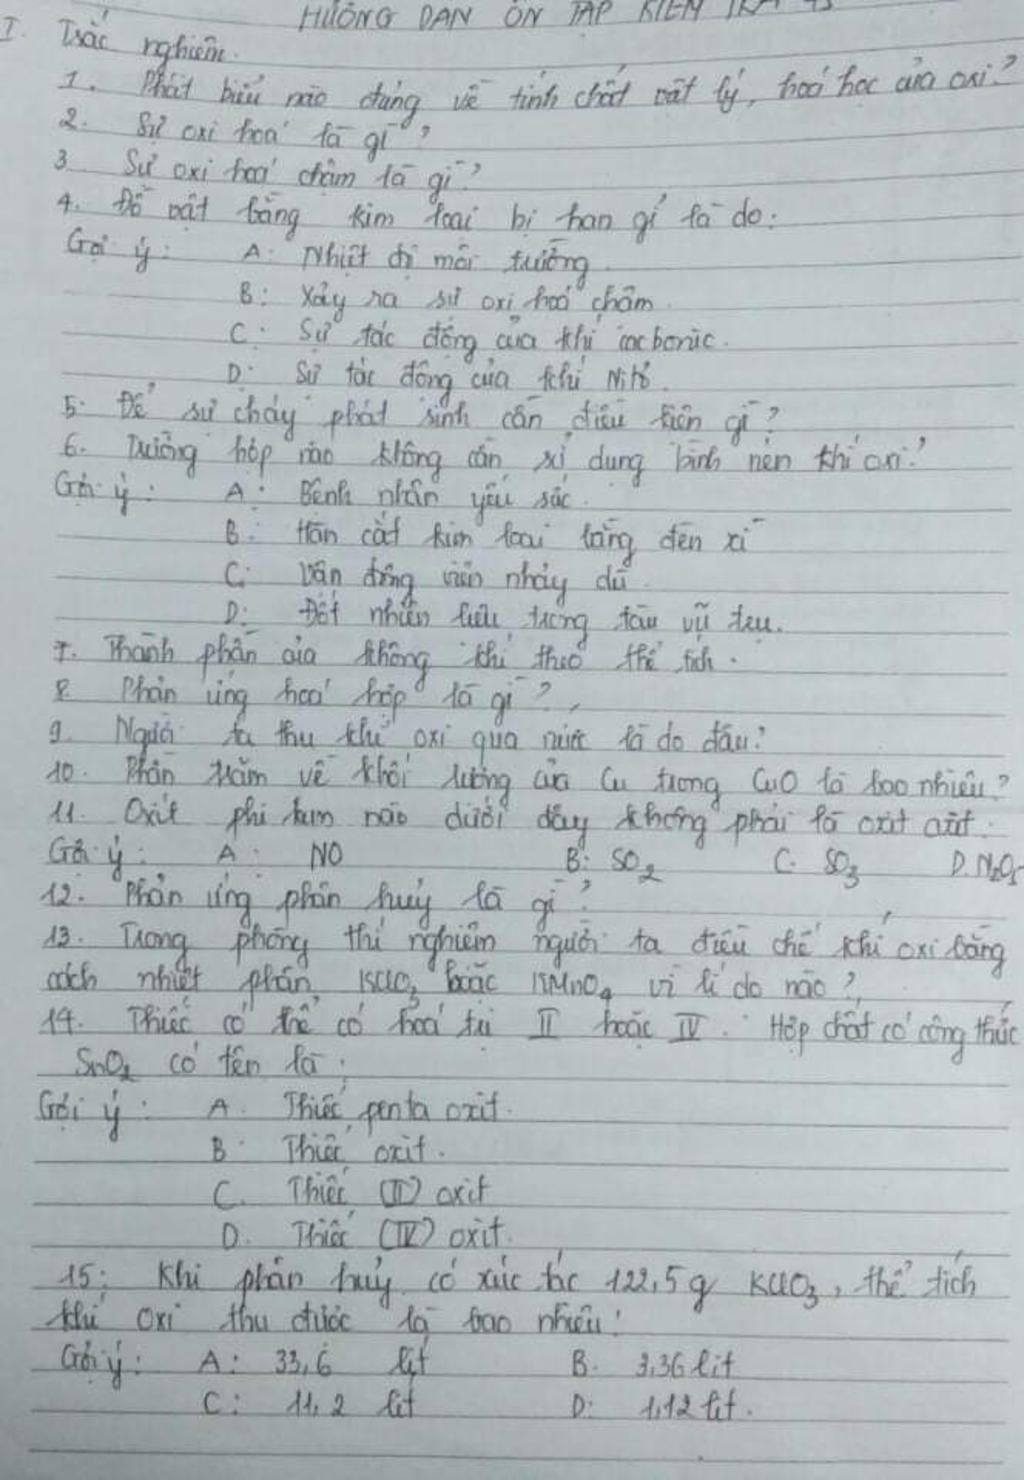 HƯỚNG DẪN ÔN TẬP KIỂM TRA 45
I. Trắc nghiệm.
1. Phát biểu nào đúng về tính chất vật lý, hoá học của oxi?
2. Sự oxi hoá là gì?
3. Sự oxi hoá chậm là gì?
4. Đồ vật bằng kim loại bị han gỉ là do:
Gợi ý: A: Nhiệt độ môi trường
B: Xảy ra sự oxi hoá chậm.
C: Sự tác động của khí cacbonic.
D: Sự tác động của khí Nitơ.
5. Để sự cháy phát sinh cần điều kiện gì?
6. Trường hợp nào không cần sử dụng bình nén khí oxi?
Gợi ý: A: Bệnh nhân yếu sức.
B: Hàn cắt kim loại bằng đèn xì
C: Vận động viên nhảy dù.
D: Đốt nhiên liệu trong tàu vũ trụ.
7. Thành phần của không khí theo thể tích.
8. Phản ứng hoá hợp là gì?
9. Người ta thu khí oxi qua nước là do đâu?
10. Phần trăm về khối lượng của Cu trong CuO là bao nhiêu?
11. Oxit phi kim nào dưới đây không phải là oxit axit.
Gợi ý: A: NO B: SO₂ C. SO₃ D. N₂O₅
12. Phản ứng phân huỷ là gì?
13. Trong phòng thí nghiệm người ta điều chế khí oxi bằng
cách nhiệt phân KClO₃ hoặc KMnO₄ vì lí do nào?
14. Thiếc có thể có hoá trị II hoặc IV. Hợp chất có công thức
SnO₂ có tên là:
Gợi ý: A. Thiếc penta oxit.
B. Thiếc oxit.
C. Thiếc (II) oxit
D. Thiếc (IV) oxit.
15: Khi phân huỷ có xúc tác 122,5g KClO₃, thể tích
khí oxi thu được là bao nhiêu?
Gợi ý: A: 33,6 lít B. 3,36 lít
C: 11,2 lít D: 1,12 lít.